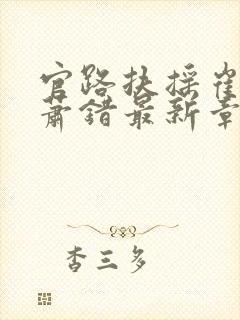 官路扶摇崔
萧错最新章
杏三多